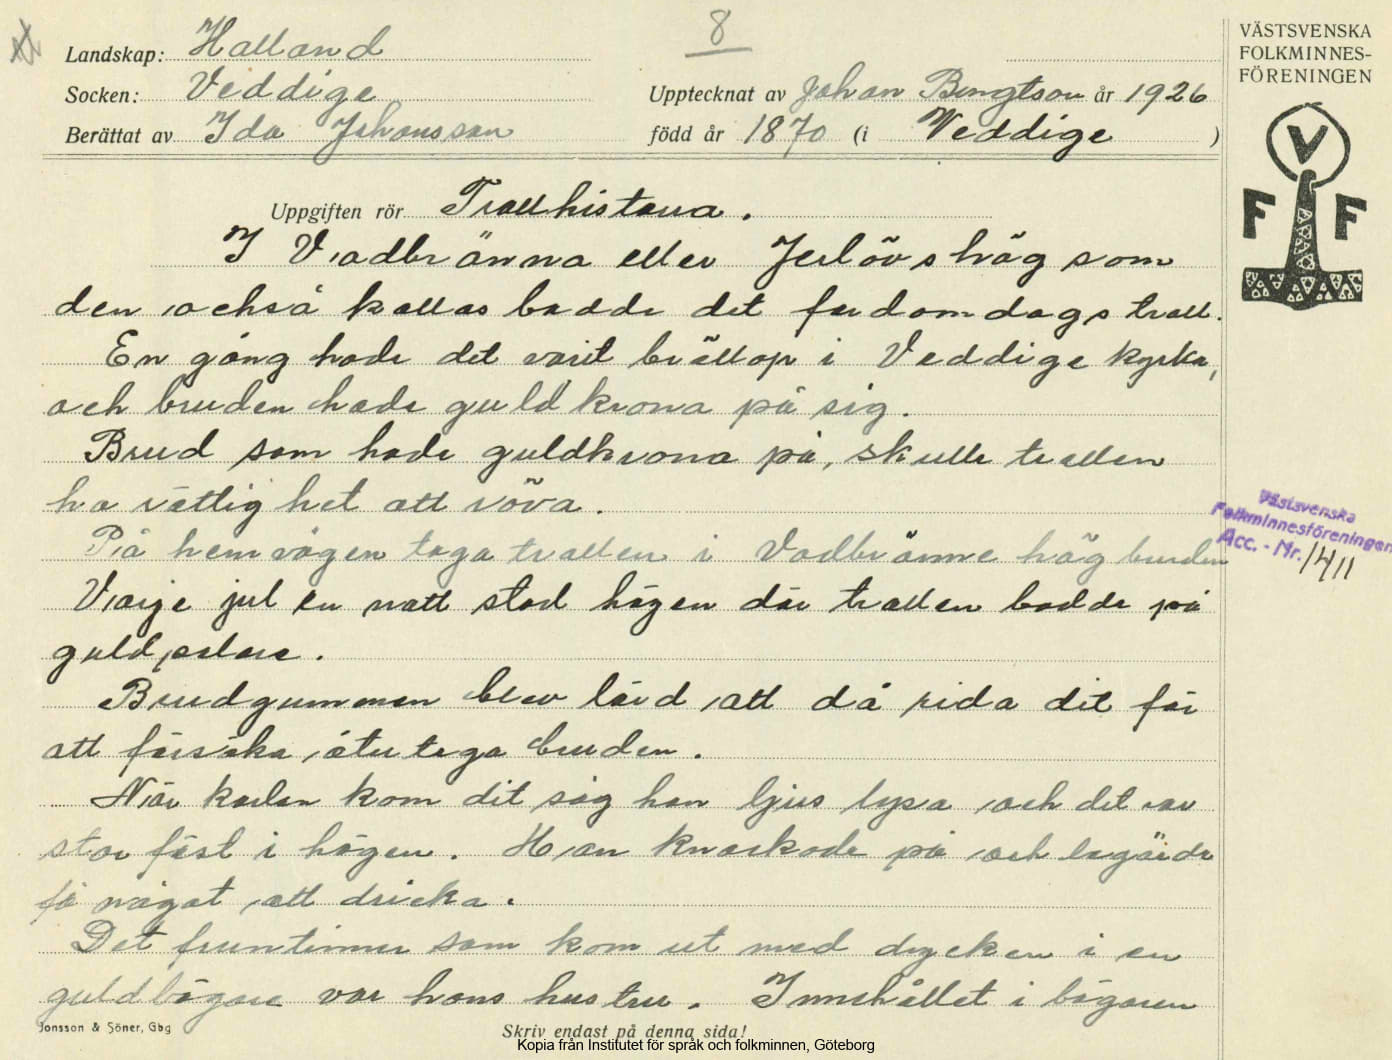 8
Landskap: Halland
Socken: Veddige
Upptecknat av Johan Bengtson år 1926
Berättat av Ida Johansson
född år 1870 (i Veddige)
VÄSTSVENSKA
FOLKMINNES-
FÖRENINGEN
V
F F
Uppgiften rör Trollhistoria.
I Vadbränna eller Jerlövs hög som
den också kallas bodde det fordomdags troll.
En gång hade det varit bröllop i Veddige kyrka,
och bruden hade guldkrona på sig.
Brud som hade guldkrona på, skulle trollen
ha rättighet att röva.
På hemvägen toga trollen i Vadbränne hög bruden
Varje jul en natt stod högen där trollen bodde på
guldpelare.
Brudgummen blev lärd att då rida dit för
att försöka återtaga bruden.
När karlen kom dit såg han ljus lysa och det var
stor fäst i högen. Han knackade på och begärde
få något att dricka.
Det fruntimmer som kom ut med drycken i en
guldbägare var hans hustru. Innehållet i bägaren
Västsvenska
Folkminnesföreningen
Acc. - Nr. 1411
Jonsson & Söner, Gbg
Skriv endast på denna sida!
Kopia från Institutet för språk och folkminnen, Göteborg